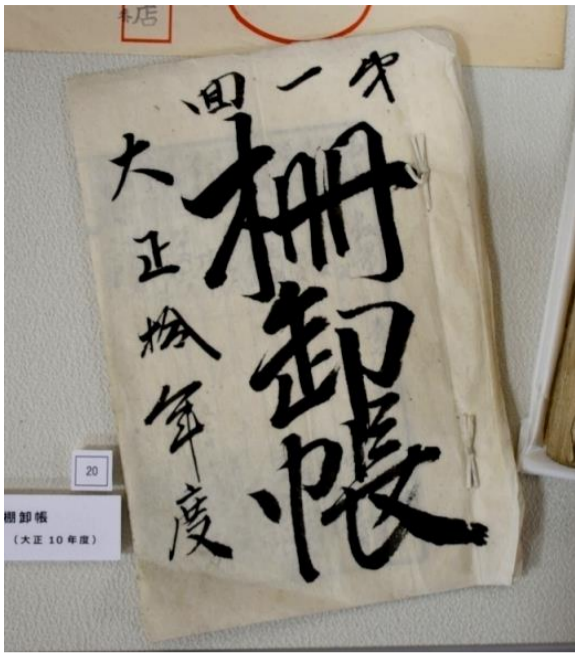 店
第一回
柵卸帳
大正拾年度
20
棚卸帳
（大正 10 年度）